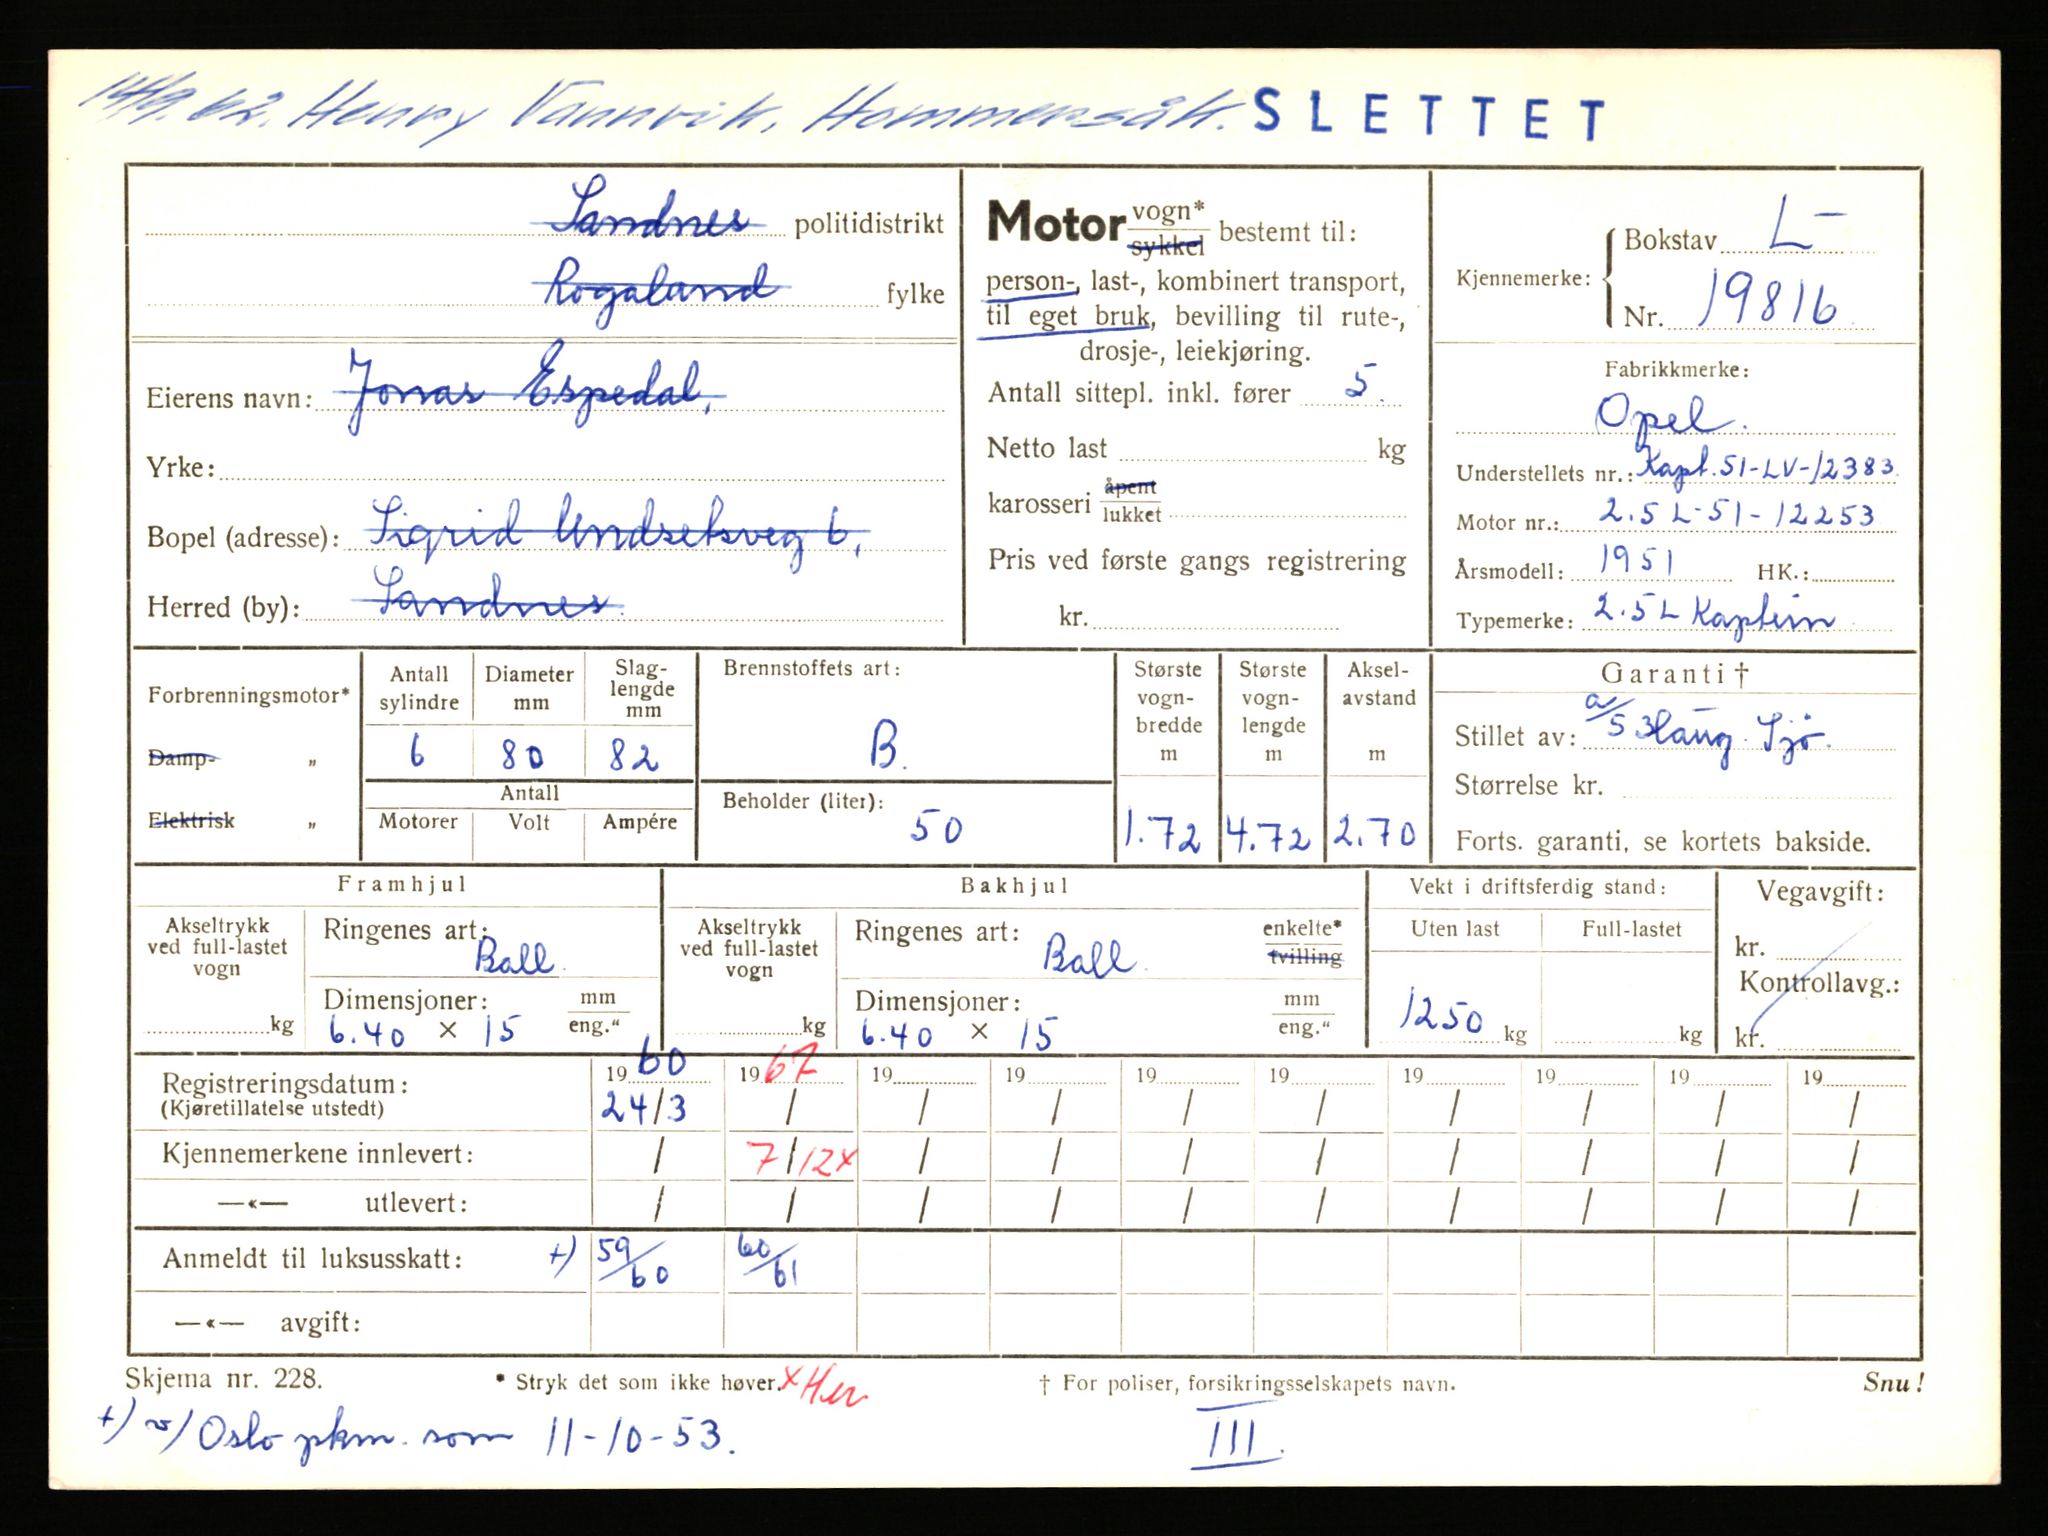 14/9.62. Henry Vannvik, Hommersåk. SLETTET
Sandnes politidistrikt
Rogaland fylke
Eierens navn: Jonas Espedal,
Yrke:
Bopel (adresse): Sigrid Undsetsveg 6,
Herred (by): Sandnes.
Motor vogn* sykkel bestemt til:
person-, last-, kombinert transport,
til eget bruk, bevilling til rute-,
drosje-, leiekjøring.
Antall sittepl. inkl. fører 5.
Netto last kg
karosseri åpent lukket
Pris ved første gangs registrering
kr.
Kjennemerke: Bokstav L-
Nr. 19816
Fabrikkmerke:
Opel.
Understellets nr.: Kapt. 51-LV-12383
Motor nr.: 2.5 L-51-12253
Årsmodell: 1951 HK.:
Typemerke: 2.5 L Kaptein
Forbrenningsmotor*
Damp- „
Elektrisk „
Antall sylindre
6
Diameter mm
80
Slag-lengde mm
82
Antall
Motorer Volt Ampére
Brennstoffets art:
B.
Beholder (liter):
50
Største vogn-bredde m
1.72
Største vogn-lengde m
4.72
Aksel-avstand m
2.70
Garanti †
Stillet av: a/s
Størrelse kr.
Forts. garanti, se kortets bakside.
Framhjul
Akseltrykk ved full-lastet vogn
kg
Ringenes art:
Ball
Dimensjoner: mm eng."
6.40 × 15
Bakhjul
Akseltrykk ved full-lastet vogn
kg
Ringenes art: enkelte* tvilling
Ball
Dimensjoner: mm eng."
6.40 × 15
Vekt i driftsferdig stand:
Uten last Full-lastet
1250 kg kg
Vegavgift:
kr.
Kontrollavg.:
kr.
Registreringsdatum: 1960 1967 19 19 19 19 19 19 19 19
(Kjøretillatelse utstedt) 24/3 / / / / / / / / /
Kjennemerkene innlevert: / 7/12x / / / / / / / /
—«— utlevert: / / / / / / / / / /
Anmeldt til luksusskatt: +) 59/60 60/61
—«— avgift:
Skjema nr. 228. * Stryk det som ikke høver. x Her † For poliser, forsikringsselskapets navn. Snu!
+) v/ Oslo pkm. som 11-10-53. III.